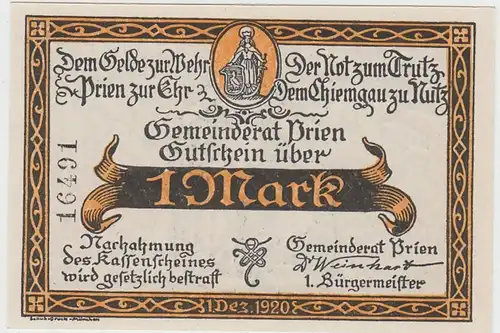 Dem Gelde zur Wehr Der Not zum Trutz
Prien zur Ehr Dem Chiemgau zu Nutz
Gemeinderat Prien
Gutschein über
1 Mark
16491
Nachahmung
des Kassenscheines
wird gesetzlich bestraft
Gemeinderat Prien
Dr Weinhart
1. Bürgermeister
1. Dez. 1920